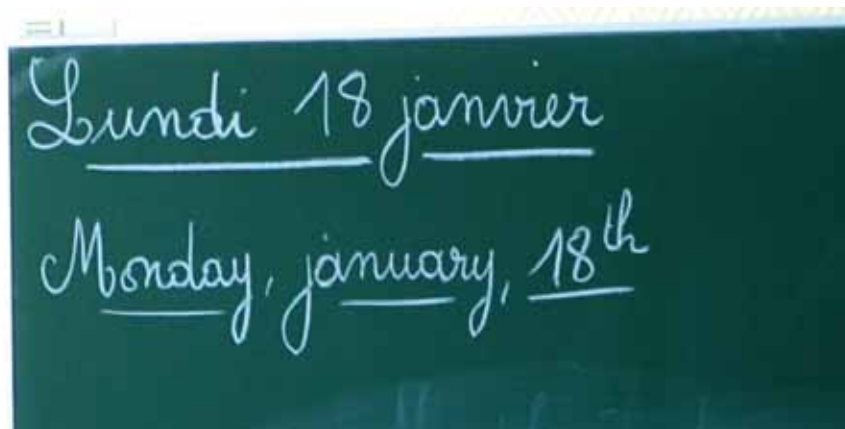 Lundi 18 janvier
Monday, january, 18th